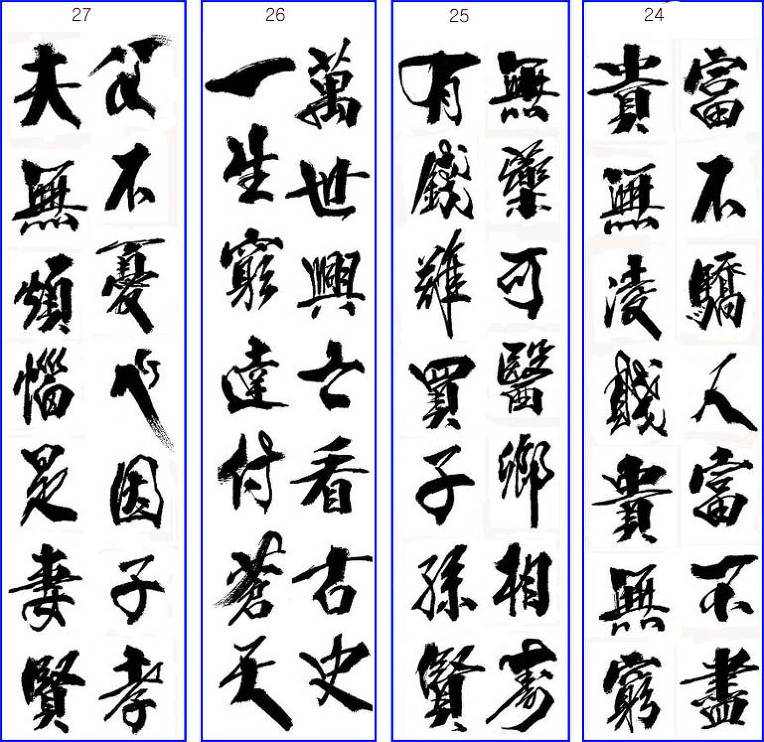 24
富不驕人富不盡
貴無凌賤貴無窮
25
無藥可醫卿相壽
有錢難買子孫賢
26
萬世興亡看古史
一生窮達付蒼天
27
父不憂心因子孝
夫無煩惱是妻賢